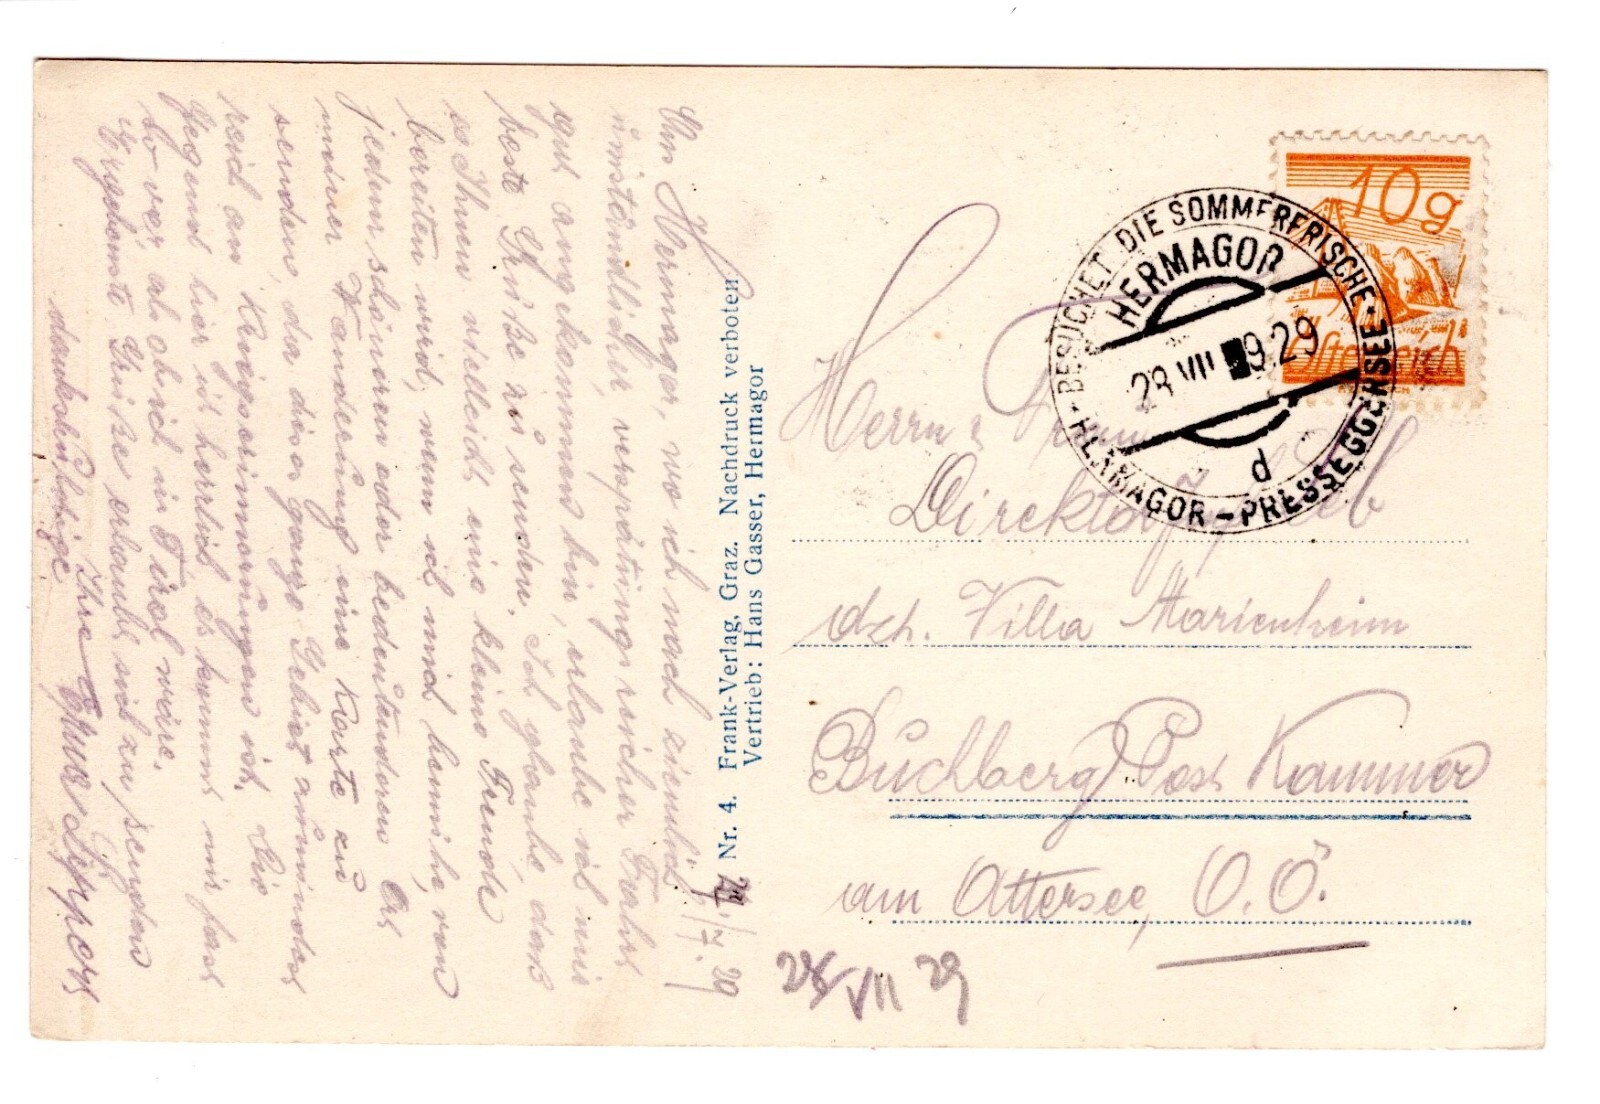 Von Hermagor, wo ich nach ziemlich
umständlicher, verspätungsreicher Fahrt
gut angekommen bin, erlaube ich mir
beste Grüße zu senden. Ich glaube, daß
es Ihnen vielleicht eine kleine Freude
bereiten wird, wenn ich mich bemühe, von
jedem schöneren oder bedeutenderen Ort
meiner Wanderung eine Karte zu
senden, da dieses ganze Gebiet zumindest
reich an Kriegserinnerungen ist. Die
Gegend hier ist herrlich es kommt mir fast
so vor als ob ich in Tirol wäre.
Ergebenste Grüße erlaubt sich zu senden
Ihre
dankesschuldige
/7. 29
Nr. 4. Frank-Verlag, Graz. Nachdruck verboten
Vertrieb: Hans Gasser, Hermagor
28/VII 29
10g
Österreich
BESUCHET DIE SOMMERFRISCHE
HERMAGOR
28 VII 929
d
HERMAGOR-PRESSEGGERSEE
Herrn
Direktor
dzt. Villa Marienheim
Buchberg Post Kammer
am Attersee, O.Ö.